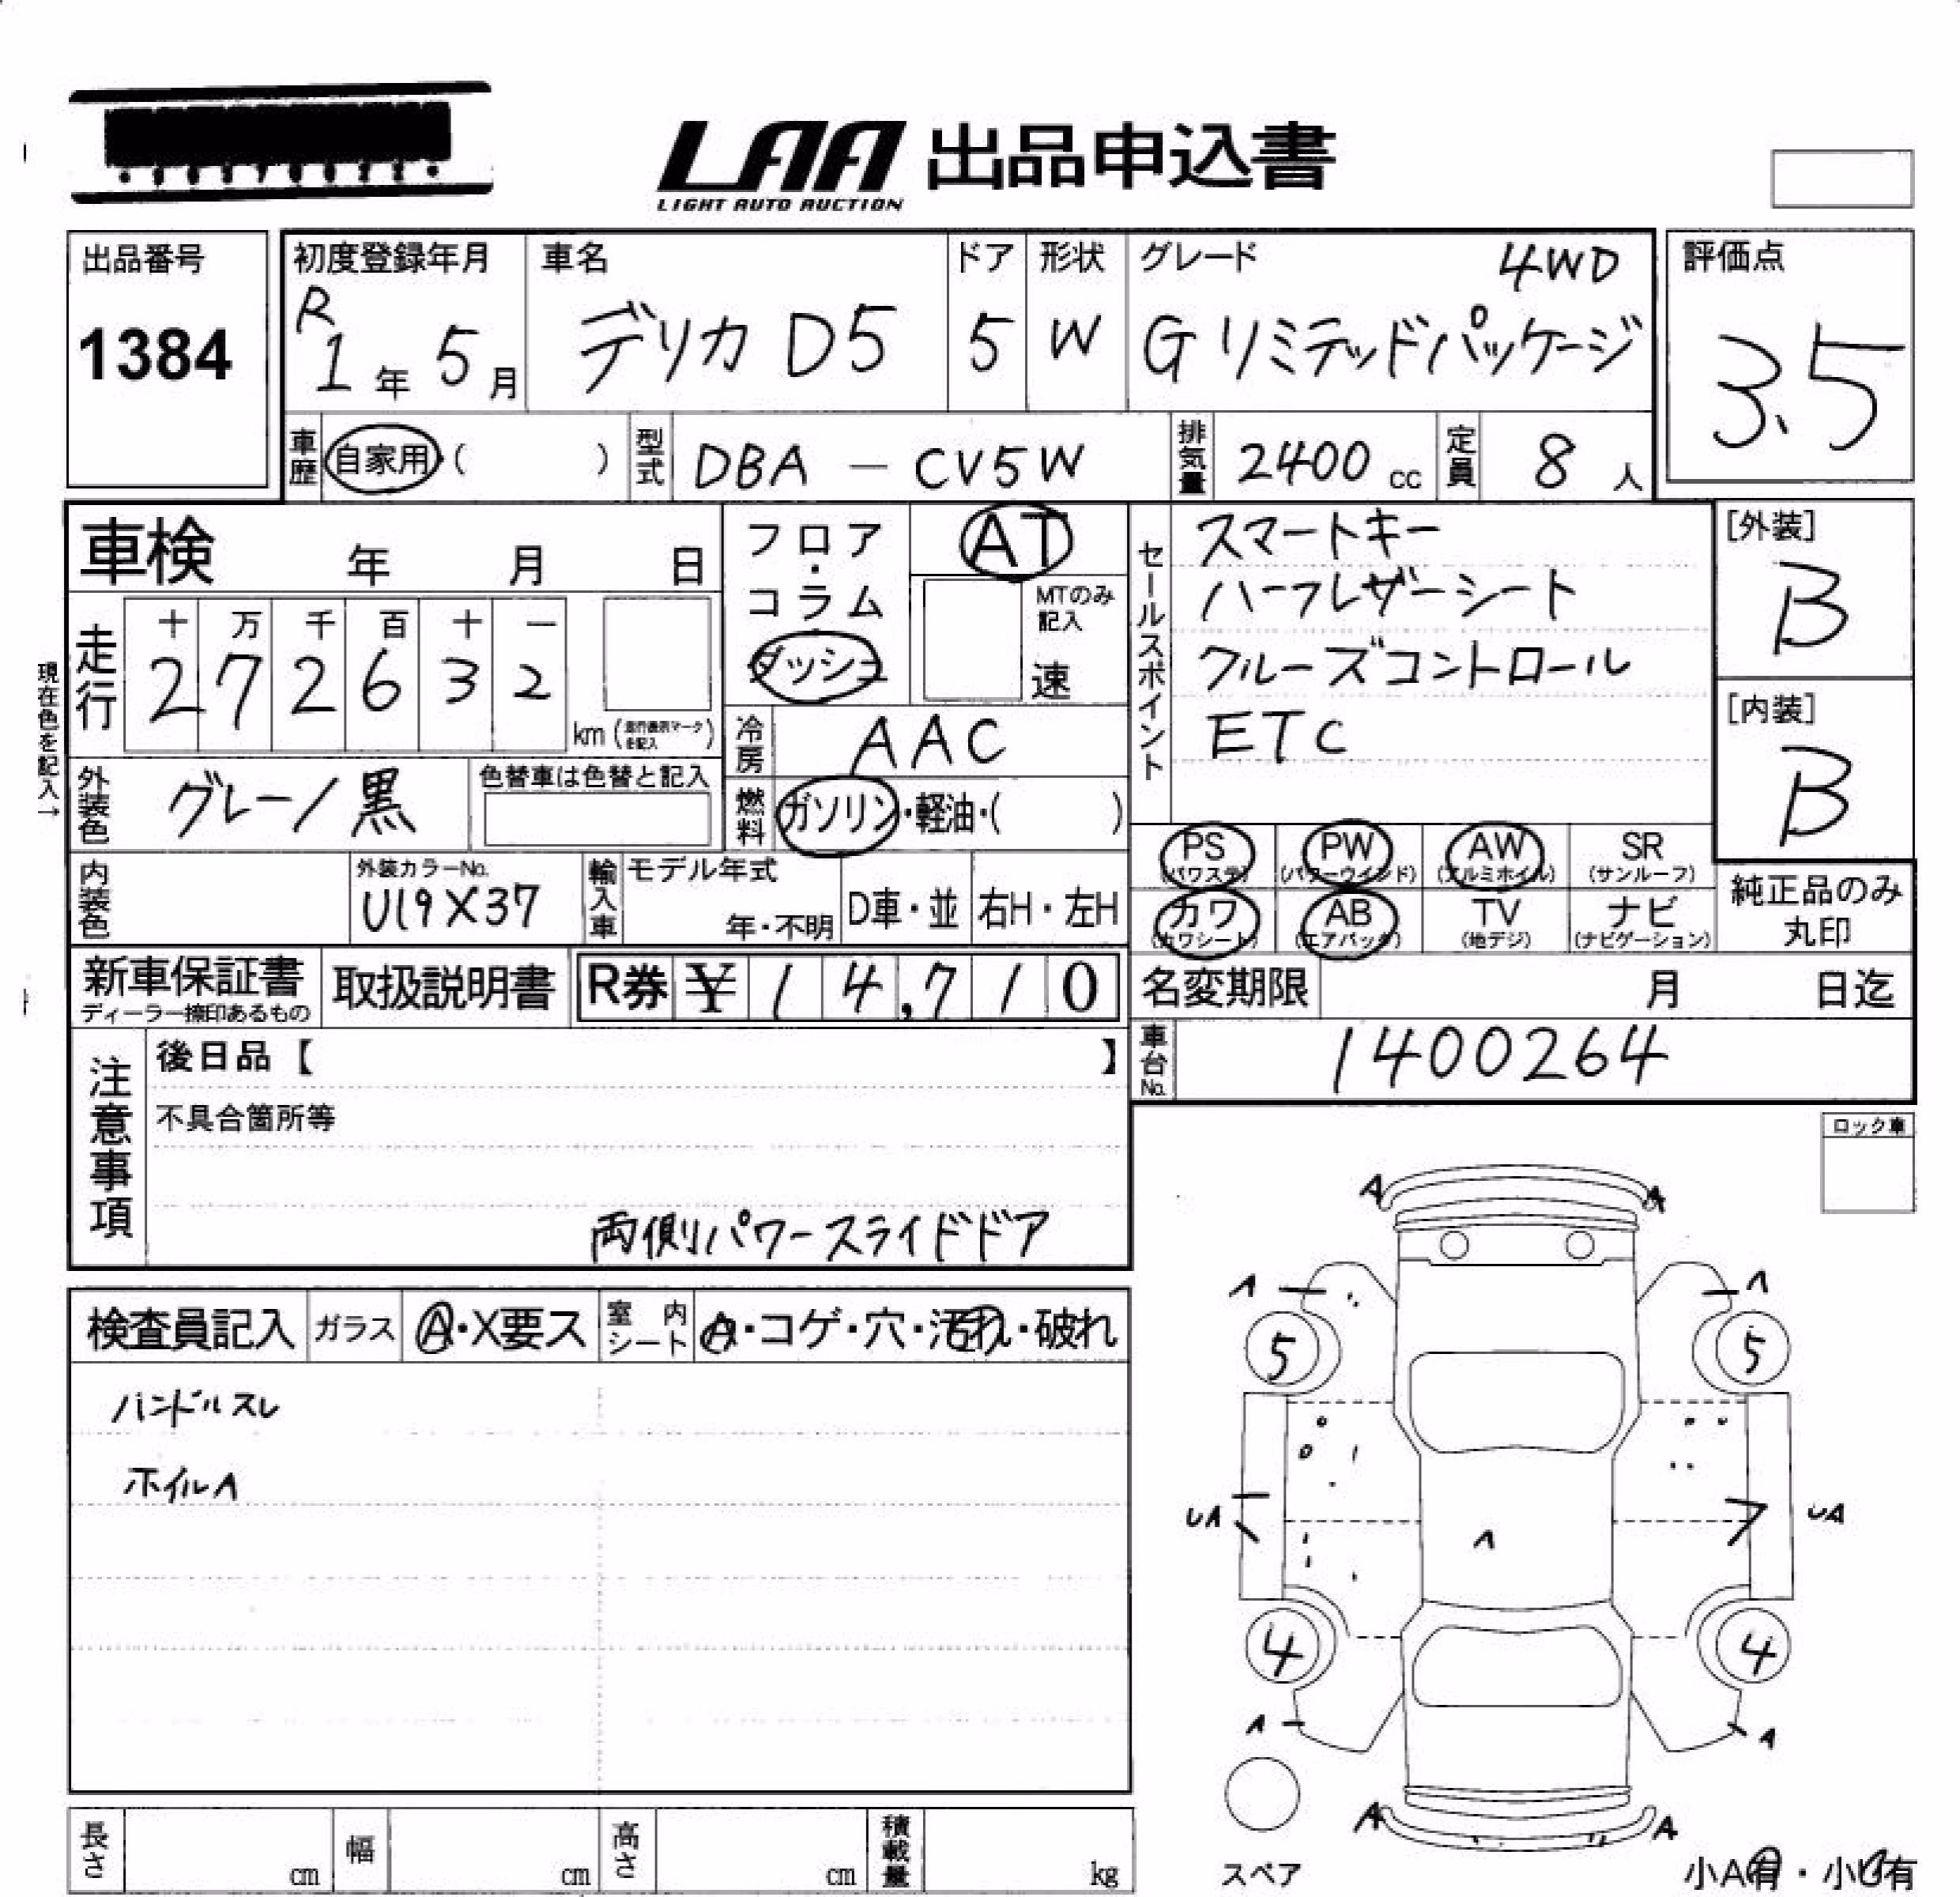 LAA 出品申込書
LIGHT AUTO AUCTION
出品番号
1384
初度登録年月
R1年5月
車名
デリカ D5
ドア
5
形状
W
グレード
4WD
G リミテッドパッケージ
評価点
3.5
車歴
自家用・( )
型式
DBA - CV5W
排気量
2400 cc
定員
8 人
車検 年 月 日
走行
十 万 千 百 十 一
2 7 2 6 3 2
km
現在色を記入→
フロア・コラム
ダッシュ
AT
MTのみ記入
速
冷房
AAC
燃料
ガソリン・軽油・( )
セールスポイント
スマートキー
ハーフレザーシート
クルーズコントロール
ETC
[外装]
B
[内装]
B
外装色
グレー/黒
色替車は色替と記入
内装色
外装カラーNo.
U19X37
輸入車
モデル年式
年・不明
D車・並
右H・左H
PS
(パワステ)
PW
(パワーウインド)
AW
(アルミホイル)
SR
(サンルーフ)
カワ
(カワシート)
AB
(エアバック)
TV
(地デジ)
ナビ
(ナビゲーション)
純正品のみ
丸印
新車保証書
ディーラー捺印あるもの
取扱説明書
R券 ¥ 14,710
名変期限 月 日迄
車台No.
1400264
注意事項
後日品【 】
不具合箇所等
両側パワースライドドア
ロック車
検査員記入
ガラス
A・X要ス
室内シート
A・コゲ・穴・汚れ・破れ
ハンドルスレ
ホイルA
A A
A A
5 5
UA UA
A
4 4
A A
A A
スペア
小A有・小U有
長さ cm
幅 cm
高さ cm
積載量 kg